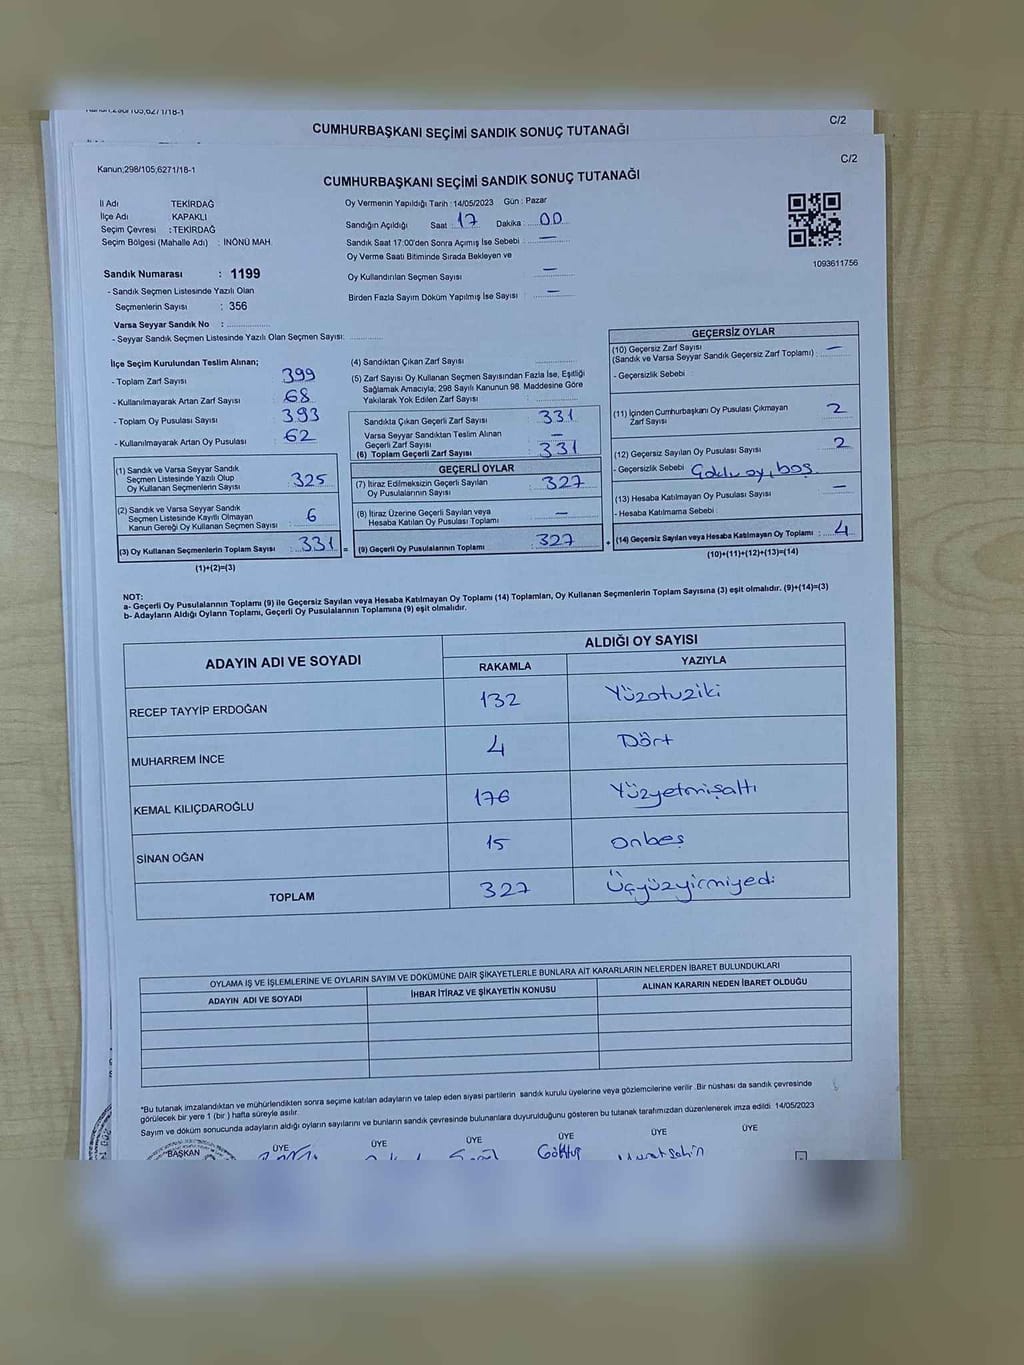 CUMHURBAŞKANI SEÇİMİ SANDIK SONUÇ TUTANAĞI
C/2
Kanun;298/105;6271/18-1
C/2
CUMHURBAŞKANI SEÇİMİ SANDIK SONUÇ TUTANAĞI
İl Adı TEKİRDAĞ
İlçe Adı KAPAKLI
Seçim Çevresi : TEKİRDAĞ
Seçim Bölgesi (Mahalle Adı) : İNÖNÜ MAH.
Oy Vermenin Yapıldığı Tarih : 14/05/2023 Gün : Pazar
Sandığın Açıldığı Saat : 17 Dakika : 00
Sandık Saat 17:00'den Sonra Açımış İse Sebebi : —
Oy Verme Saati Bitiminde Sırada Bekleyen ve
Oy Kullandırılan Seçmen Sayısı —
Birden Fazla Sayım Döküm Yapılmış İse Sayısı : —
1093611756
Sandık Numarası : 1199
- Sandık Seçmen Listesinde Yazılı Olan
Seçmenlerin Sayısı : 356
Varsa Seyyar Sandık No :
- Seyyar Sandık Seçmen Listesinde Yazılı Olan Seçmen Sayısı:
İlçe Seçim Kurulundan Teslim Alınan;
- Toplam Zarf Sayısı 399
- Kullanılmayarak Artan Zarf Sayısı 68
- Toplam Oy Pusulası Sayısı 393
- Kullanılmayarak Artan Oy Pusulası 62
(1) Sandık ve Varsa Seyyar Sandık
Seçmen Listesinde Yazılı Olup
Oy Kullanan Seçmenlerin Sayısı 325
(2) Sandık ve Varsa Seyyar Sandık
Seçmen Listesinde Kayıtlı Olmayan
Kanun Gereği Oy Kullanan Seçmen Sayısı : 6
(3) Oy Kullanan Seçmenlerin Toplam Sayısı : 331 =
(1)+(2)=(3)
(4) Sandıktan Çıkan Zarf Sayısı
(5) Zarf Sayısı Oy Kullanan Seçmen Sayısından Fazla İse, Eşitliği
Sağlamak Amacıyla, 298 Sayılı Kanunun 98. Maddesine Göre
Yakılarak Yok Edilen Zarf Sayısı :
Sandıkta Çıkan Geçerli Zarf Sayısı 331
Varsa Seyyar Sandıktan Teslim Alınan
Geçerli Zarf Sayısı —
(6) Toplam Geçerli Zarf Sayısı 331
GEÇERLİ OYLAR
(7) İtiraz Edilmeksizin Geçerli Sayılan
Oy Pusulalarının Sayısı 327
(8) İtiraz Üzerine Geçerli Sayılan veya
Hesaba Katılan Oy Pusulası Toplamı —
(9) Geçerli Oy Pusulalarının Toplamı 327 +
GEÇERSİZ OYLAR
(10) Geçersiz Zarf Sayısı
(Sandık ve Varsa Seyyar Sandık Geçersiz Zarf Toplamı) : —
- Geçersizlik Sebebi :
(11) İçinden Cumhurbaşkanı Oy Pusulası Çıkmayan
Zarf Sayısı 2
(12) Geçersiz Sayılan Oy Pusulası Sayısı 2
- Geçersizlik Sebebi oy, boş
(13) Hesaba Katılmayan Oy Pusulası Sayısı —
- Hesaba Katılmama Sebebi :
(14) Geçersiz Sayılan veya Hesaba Katılmayan Oy Toplamı : 4
(10)+(11)+(12)+(13)=(14)
NOT:
a- Geçerli Oy Pusulalarının Toplamı (9) ile Geçersiz Sayılan veya Hesaba Katılmayan Oy Toplamı (14) Toplamları, Oy Kullanan Seçmenlerin Toplam Sayısına (3) eşit olmalıdır. (9)+(14)=(3)
b- Adayların Aldığı Oyların Toplamı, Geçerli Oy Pusulalarının Toplamına (9) eşit olmalıdır.
ADAYIN ADI VE SOYADI
ALDIĞI OY SAYISI
RAKAMLA YAZIYLA
RECEP TAYYİP ERDOĞAN 132 Yüzotuziki
MUHARREM İNCE 4 Dört
KEMAL KILIÇDAROĞLU 176 Yüzyetmişaltı
SİNAN OĞAN 15 onbeş
TOPLAM 327 Üçyüzyirmiyedi
OYLAMA İŞ VE İŞLEMLERİNE VE OYLARIN SAYIM VE DÖKÜMÜNE DAİR ŞİKAYETLERLE BUNLARA AİT KARARLARIN NELERDEN İBARET BULUNDUKLARI
ADAYIN ADI VE SOYADI İHBAR İTİRAZ VE ŞİKAYETİN KONUSU ALINAN KARARIN NEDEN İBARET OLDUĞU
*Bu tutanak imzalandıktan ve mühürlendikten sonra seçime katılan adayların ve talep eden siyasi partilerin sandık kurulu üyelerine veya gözlemcilerine verilir. Bir nüshası da sandık çevresinde
görülecek bir yere 1 (bir ) hafta süreyle asılır.
Sayım ve döküm sonucunda adayların aldığı oyların sayılarını ve bunların sandık çevresinde bulunanlara duyurulduğunu gösteren bu tutanak tarafımızdan düzenlenerek imza edildi. 14/05/2023
BAŞKAN ÜYE ÜYE ÜYE ÜYE ÜYE ÜYE
Murat Şahin